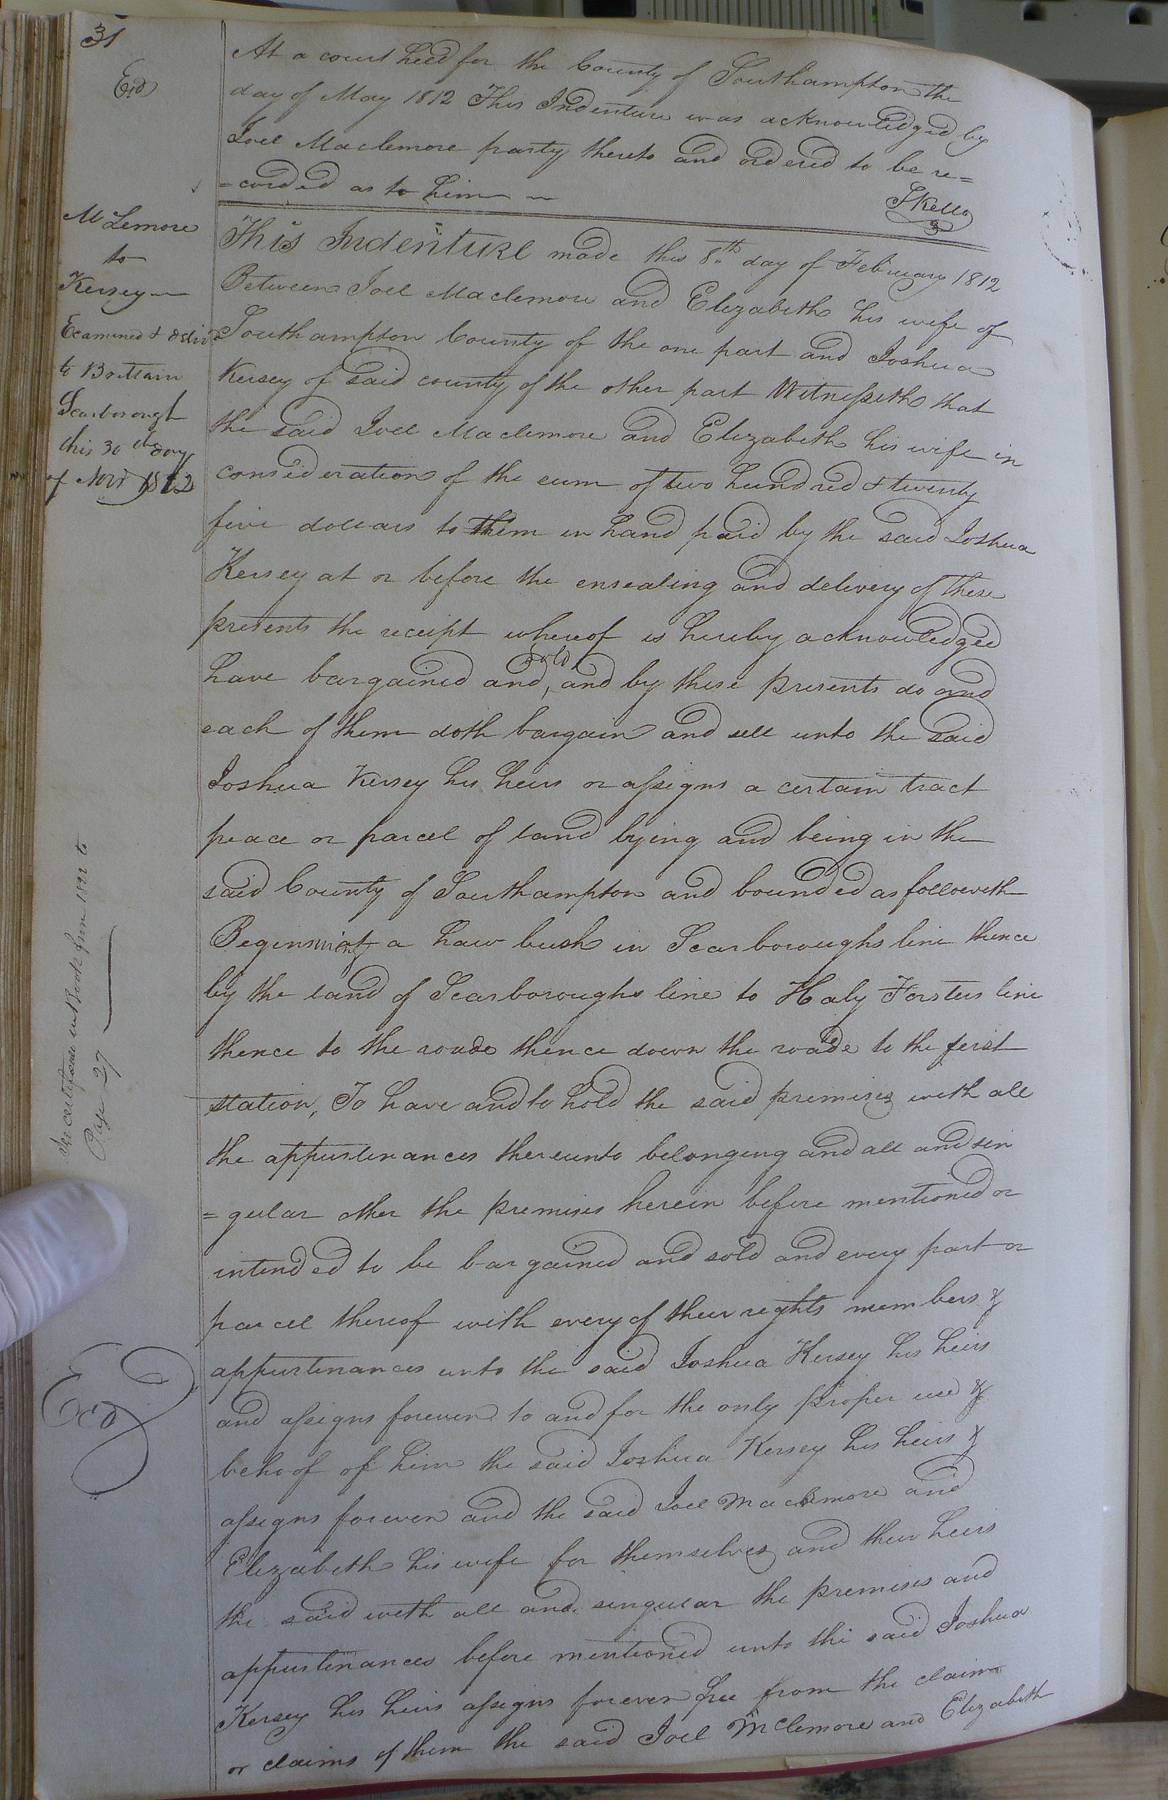 31
Exd
At a court held for the County of Southampton the
day of May 1812 This Indenture was acknowledged by
Joel Maclemore party thereto and ordered to be re=
=corded as to him
SKello
McLemore
to
Kersey
Examined & deliv
to Brittain
Scarborough
this 30th day
of Novr 1812
This Indenture made this 8th day of February 1812
Between Joel Maclemore and Elizabeth his wife of
Southampton County of the one part and Joshua
Kersey of said county of the other part Witnesseth that
the said Joel Maclemore and Elizabeth his wife in
consideration of the sum of two hundred & twenty
five dollars to them in hand paid by the said Joshua
Kersey at or before the ensealing and delivery of these
presents the receipt whereof is hereby acknowledged
have bargained and sold, and by these presents do and
each of them doth bargain and sell unto the said
Joshua Kersey his heirs or assigns a certain tract
peace or parcel of land lying and being in the
said County of Southampton and bounded as followeth
Begining at a haw bush in Scarboroughs line thence
by the land of Scarboroughs line to Haly Forsters line
thence to the roade thence down the roade to the ferst
station, To have and to hold the said premises with all
the appurtenances thereunto belonging and all and sin
=gular other the premises herein before mentioned or
intended to be bargained and sold and every part or
parcel thereof with every of their rights members &
appurtenances unto the said Joshua Kersey his heirs
and assigns forever to and for the only proper use &
behoof of him the said Joshua Kersey his heirs &
assigns forever and the said Joel Maclemore and
Elizabeth his wife for themselves and their heirs
the said with all and singular the premises and
appurtenances before mentioned unto the said Joshua
Kersey his heirs assigns forever free from the claim
or claims of them the said Joel Mclemore and Elizabeth
For certificate in Book Jun 1822 to
Page 27
Exd